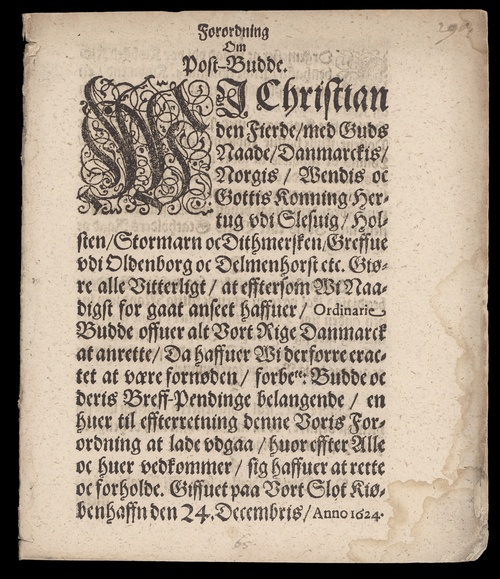 Forordning
Om
Post-Budde.
WJ Christian
den Fierde/med Guds
Naade/Danmarckis/
Norgis / Wendis oc
Gottis Konning/Her-
tug vdi Slesuig/Hol-
sten/Stormarn oc Dithmersken/Greffue
vdi Oldenborg oc Delmenhorst etc. Giø-
re alle Vitterligt / at efftersom Wi Naa-
digst for gaat anseet haffuer/ Ordinarie
Budde offuer alt Vort Rige Danmarck
at anrette/ Da haffuer Wi derforre erac-
tet at være fornøden / forbete: Budde oc
deris Breff-Pendinge belangende / en
huer til effterretning denne Voris For-
ordning at lade vdgaa /huor effter Alle
oc huer vedkommer / sig haffuer at rette
oc forholde. Giffuet paa Vort Slot Kiø-
benhaffn den 24. Decembris/ Anno 1624.